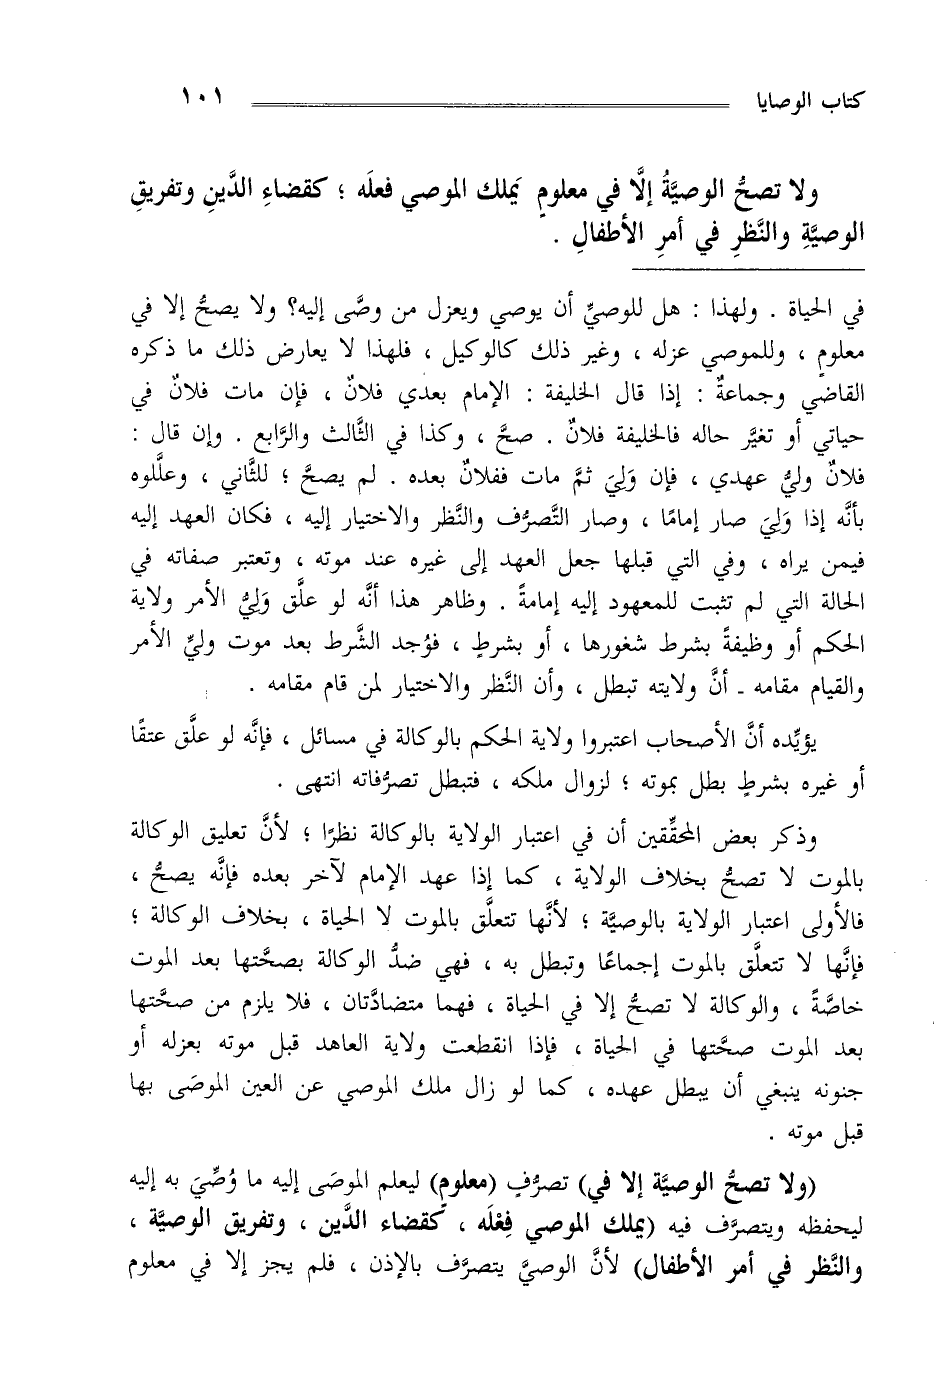 كتاب الوصايا ١٠١
ولا تصحُّ الوصيَّةُ إلَّا في معلومٍ يَملك الموصي فعلَه ؛ كقضاءِ الدَّينِ وتفريقِ
الوصيَّةِ والنَّظرِ في أمرِ الأطفالِ .
في الحياة . ولهذا : هل للوصيِّ أن يوصي ويعزل من وصَّى إليه؟ ولا يصحُّ إلا في
معلومٍ ، وللموصي عزله ، وغير ذلك كالوكيل ، فلهذا لا يعارض ذلك ما ذكره
القاضي وجماعةٌ : إذا قال الخليفة : الإمام بعدي فلانٌ ، فإن مات فلانٌ في
حياتي أو تغيَّر حاله فالخليفة فلانٌ . صحَّ ، وكذا في الثَّالث والرَّابع . وإن قال :
فلانٌ وليُّ عهدي ، فإن وَلِيَ ثمَّ مات ففلانٌ بعده . لم يصحَّ ؛ للثَّاني ، وعلَّلوه
بأنَّه إذا وَلِيَ صار إمامًا ، وصار التَّصرُّف والنَّظر والاختيار إليه ، فكان العهد إليه
فيمن يراه ، وفي التي قبلها جعل العهد إلى غيره عند موته ، وتعتبر صفاته في
الحالة التي لم تثبت للمعهود إليه إمامةً . وظاهر هذا أنَّه لو علَّق وَلِيُّ الأمر ولاية
الحكم أو وظيفةً بشرط شغورها ، أو بشرطٍ ، فوُجد الشَّرط بعد موت وليِّ الأمر
والقيام مقامه ـ أنَّ ولايته تبطل ، وأن النَّظر والاختيار لمن قام مقامه .
يؤيِّده أنَّ الأصحاب اعتبروا ولاية الحكم بالوكالة في مسائل ، فإنَّه لو علَّق عتقًا
أو غيره بشرطٍ بطل بموته ؛ لزوال ملكه ، فتبطل تصرُّفاته انتهى .
وذكر بعض المحقِّقين أن في اعتبار الولاية بالوكالة نظرًا ؛ لأنَّ تعليق الوكالة
بالموت لا تصحُّ بخلاف الولاية ، كما إذا عهد الإمام لآخر بعده فإنَّه يصحُّ ،
فالأولى اعتبار الولاية بالوصيَّة ؛ لأنَّها تتعلَّق بالموت لا الحياة ، بخلاف الوكالة ؛
فإنَّها لا تتعلَّق بالموت إجماعًا وتبطل به ، فهي ضدُّ الوكالة بصحَّتها بعد الموت
خاصَّةً ، والوكالة لا تصحُّ إلا في الحياة ، فهما متضادَّتان ، فلا يلزم من صحَّتها
بعد الموت صحَّتها في الحياة ، فإذا انقطعت ولاية العاهد قبل موته بعزله أو
جنونه ينبغي أن يبطل عهده ، كما لو زال ملك الموصي عن العين الموصَى بها
قبل موته .
(ولا تصحُّ الوصيَّة إلا في) تصرُّفٍ (معلومٍ) ليعلم الموصَى إليه ما وُصِّيَ به إليه
ليحفظه ويتصرَّف فيه (يملك الموصي فِعْلَه ، كقضاء الدَّين ، وتفريق الوصيَّة ،
والنَّظر في أمر الأطفال) لأنَّ الوصيَّ يتصرَّف بالإذن ، فلم يجز إلا في معلوم